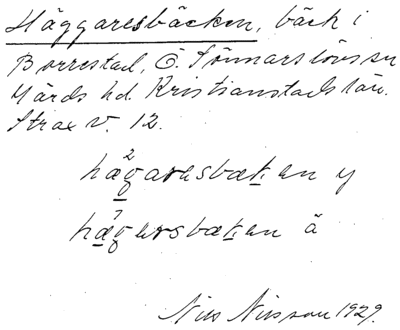 Häggaresbäcken, bäck i
Borrestad, Ö. Sönnarslövs sn
Gärds hd. Kristianstads län.
Strax v. 12.
2
hægarɘsbækɘn y
7
hægɘrsbækɘn ä
Nils Nilsson 1929.